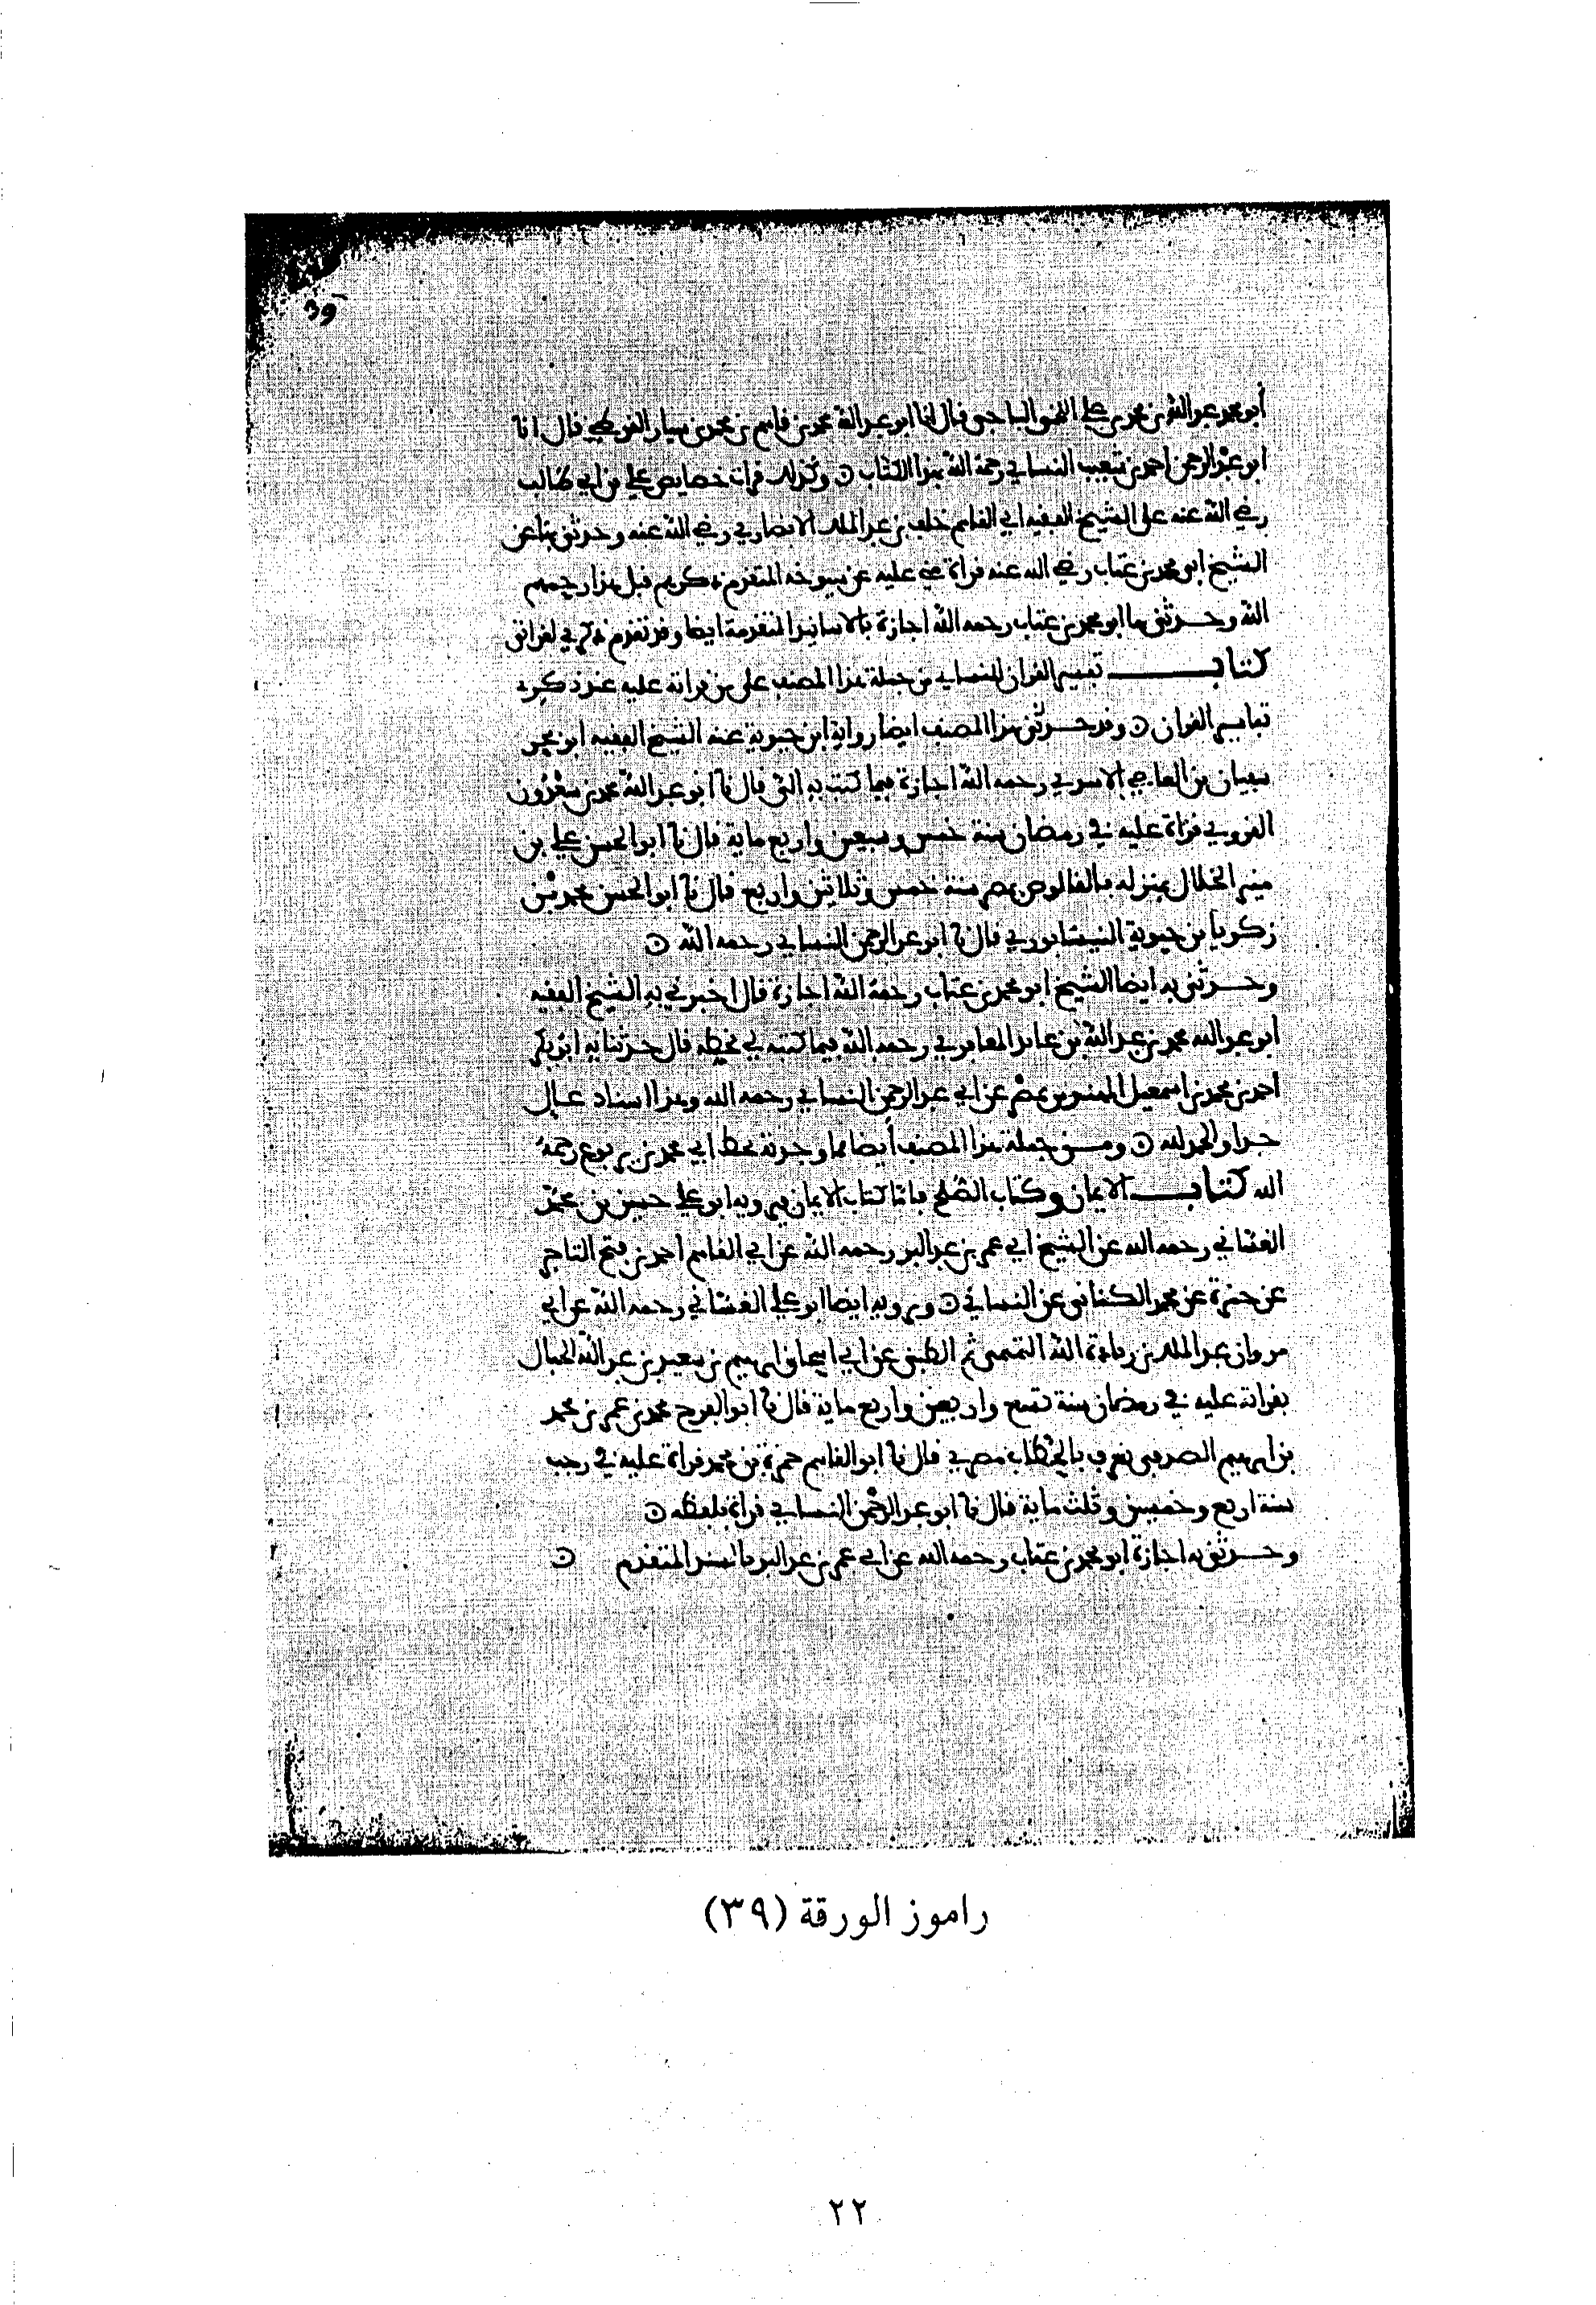 39
أبو محمد عبد الله بن محمد بن علي اللخمي الباجي قال انا ابو عبد الله محمد بن قاسم بن محمد بن سيار القرطبي قال انا
ابو عبد الرحمن احمد بن شعيب النساي رحمة الله بهذا الكتاب ۞ وكذلك قرات خصايص علي بن ابي طالب
رضي الله عنه على الشيخ الفقيه ابي القاسم خلف بن عبد الملك الانصاري رضي الله عنه وحدثني بها عن
الشيخ ابو محمد بن عتاب رضي الله عنه قراة مني عليه عن شيوخه المتقدم ذكرهم قبل هذا رحمهم
الله وحدثني بها ابو محمد بن عتاب رحمه الله اجازة بالاسانيد المتقدمة ايضا وقد تقدم ذكري لقراتي
كتاب تفسير القران للنساي من جملة هذا المصنف على من قراته عليه عند ذكري
تفاسير القران ۞ وقد حدثني بهذا المصنف ايضا رواية ابن حيوية عنه الشيخ الفقيه ابو بحر
سفيان بن العاصي الاسدي رحمه الله اجازة فيما كتب به الي قال نا ابو عبد الله محمد بن سعدون
القروي قراة عليه في رمضان سنة خمس وسبعين واربع ماية قال نا ابو الحسن علي بن
منير الخلال بمنزله بالقالوص بمصر سنة خمس وثلاثين واربع قال نا ابو الحسن محمد بن
زكريا بن حيوية النيسابوري قال نا ابو عبد الرحمن النساي رحمه الله ۞
وحدثني به ايضا الشيخ ابو محمد بن عتاب رحمة الله اجازة قال اخبرني به الشيخ الفقيه
ابو عبد الله محمد بن عبد الله بن عابد المعافري رحمه الله فيما كتبه لي بخطه قال حدثنا به ابو بكر
احمد بن محمد بن اسمعيل المهندس بمصر عن ابي عبد الرحمن النساي رحمه الله وهذا اسناد عال
جدا والحمد لله ۞ ومن جملة هذا المصنف أيضا مما وجدته بخط ابي محمد بن يربوع رحمة
الله كتاب الايمان وكتاب الصلح فاما كتاب الايمان فيرويه ابو علي حسين بن محمد
الغساني رحمه الله عن الشيخ ابي عمر بن عبد البر رحمه الله عن ابي القاسم احمد بن فتح التاجر
عن حمزة عن محمد الكناني عن النساي ۞ ويرويه ايضا ابو علي الغساني رحمه الله عن ابي
مروان عبد الملك بن زيادة الله التميمي ثم الطبني عن ابي اسحاق ابرهيم بن سعيد بن عبد الله الحبال
بقراته عليه في رمضان سنة تسع واربعين واربع ماية قال نا ابو الفرج محمد بن عمر بن محمد
بن ابرهيم الصدفي يعرف بالخطاب مصري قال نا ابو القاسم حمزة بن محمد قراة عليه في رجب
سنة اربع وخمسين وثلث ماية قال نا ابو عبد الرحمن النساي قراة بلفظه ۞
وحدثني به اجازة ابو محمد بن عتاب رحمه الله عن ابي عمر بن عبد البر بالسند المتقدم ۞
راموز الورقة (٣٩)
٢٢